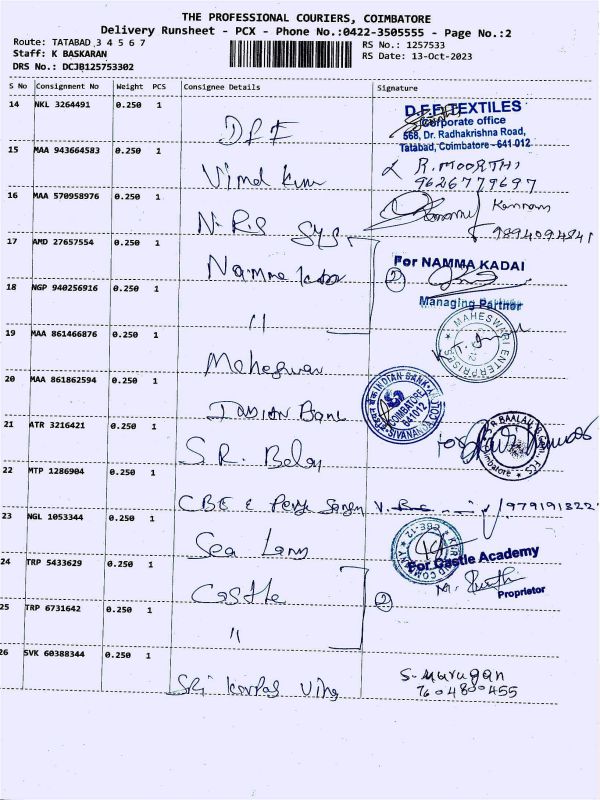 THE PROFESSIONAL COURIERS, COIMBATORE
Delivery Runsheet - PCX - Phone No.:0422-3505555 - Page No.:2
Route: TATABAD 3 4 5 6 7
RS No.: 1257533
Staff: K BASKARAN
RS Date: 13-Oct-2023
DRS No.: DCJB125753302
S No Consignment No Weight PCS Consignee Details Signature
14 NKL 3264491 0.250 1 D.F.E
D.F.E TEXTILES
Corporate office
568, Dr. Radhakrishna Road,
Tatabad, Coimbatore - 641 012
15 MAA 943664583 0.250 1 Vimal
R. MOORTHI
9626779697
16 MAA 570958976 0.250 1 N.R.S Sys
Kannan
9894094841
17 AMD 27657554 0.250 1 Namma Kadai
For NAMMA KADAI
2
Managing Partner
18 NGP 940256916 0.250 1 "
19 MAA 861466876 0.250 1 Maheswari
MAHESWARI ENTERPRISES
20 MAA 861862594 0.250 1 Indian Bank
INDIAN BANK
COIMBATORE
641012
21 ATR 3216421 0.250 1 S.R. Balaj
22 MTP 1286904 0.250 1 CBE &
23 NGL 1053344 0.250 1 Sea Land
24 TRP 5433629 0.250 1 Castle
For Castle Academy
Proprietor
2
25 TRP 6731642 0.250 1 "
26 SVK 60388344 0.250 1 Sri
S. Murugan
7604800455